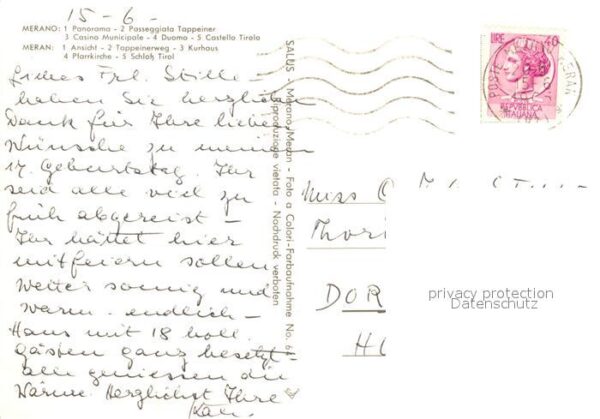 15-6-
MERANO: 1 Panorama - 2 Passeggiata Tappeiner
3 Casino Municipale - 4 Duomo - 5 Castello Tirolo
MERAN: 1 Ansicht - 2 Tappeinerweg - 3 Kurhaus
4 Pfarrkirche - 5 Schloß Tirol
Liebes Frl. Stille -
haben Sie herzlichen
Dank für Ihre lieben
Wünsche zu meinem
17. Geburtstag. Ihr
seid alle viel zu
früh abgereist -
Ihr hättet hier
mitfeiern sollen
Weiter sonnig und
warm - endlich -
Haus mit 18 holl.
Gästen ganz besetzt -
alle geniessen die
Wärme. Herzlichst Ihre
SALUS - Merano/Meran - Foto a Colori-Farbaufnahme No. 6
Riproduzione vietata - Nachdruck verboten
LIRE 40
POSTE
MERAN
REPVBBLICA
ITALIANA
Miss
Thor
DOR
HO
privacy protection
Datenschutz